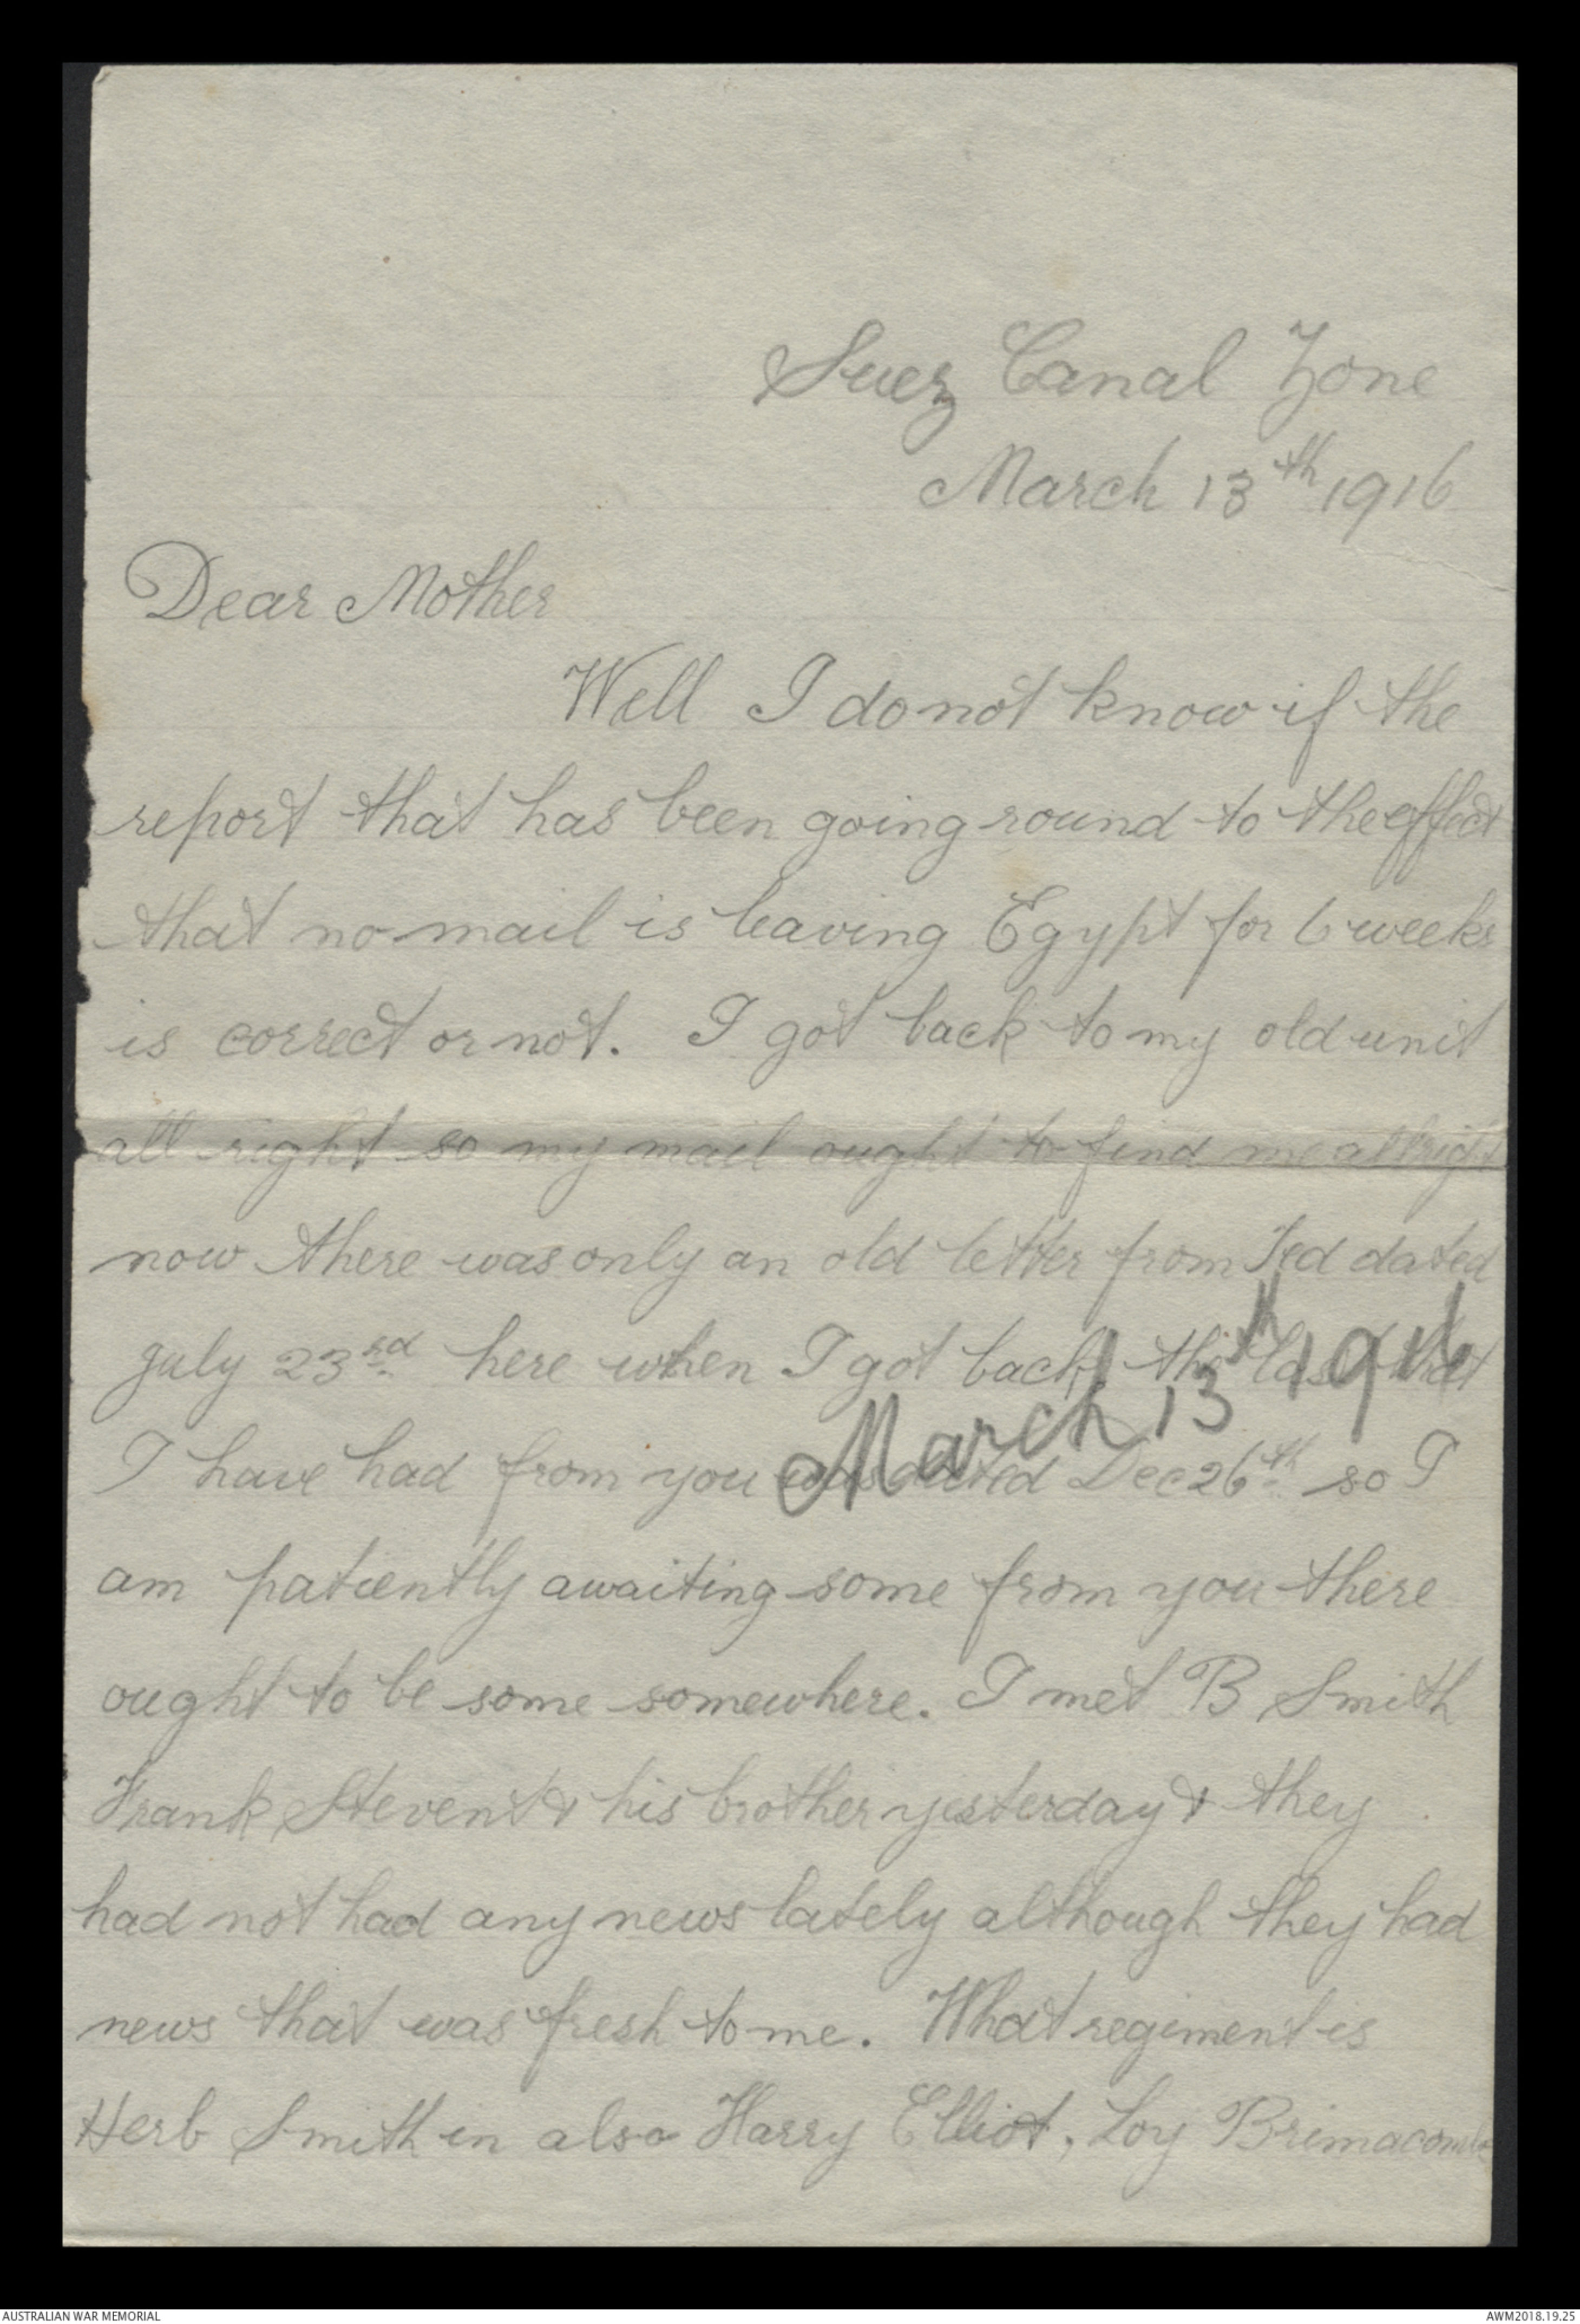 Suez Canal Zone
March 13th 1916
Dear Mother
Well I do not know if the
report that has been going round to the effect
that no mail is leaving Egypt for 6 weeks
is correct or not. I got back to my old unit
all right so my mail ought to find me allright
now there was only an old letter from Ted dated
July 23rd here when I got back, the last that
March 13th 1916
I have had from you was dated Dec 26th so I
am patiently awaiting some from you there
ought to be some somewhere. I met B Smith
Frank Stevent & his brother yesterday & they
had not had any news lately although they had
news that was fresh to me. What regiment is
Herb Smith in also Harry Elliot, Loy Brimacombe
AUSTRALIAN WAR MEMORIAL
AWM2018.19.25